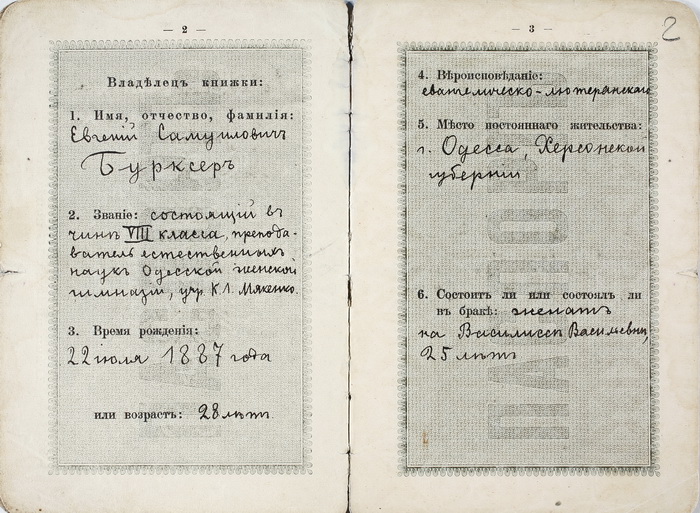 — 2 —
Владѣлецъ книжки:
1. Имя, отчество, фамилія:
Евгеній Самуиловичъ
Бурксеръ
2. Званіе: состоящій въ
чинѣ VIII класса, препода-
ватель естественныхъ
наукъ Одесской женской
гимназіи, учр. К. Л. Мякенко.
3. Время рожденія:
22 іюля 1887 года
или возрастъ: 28 лѣтъ.
— 3 —
2
4. Вѣроисповѣданіе:
евангелическо-лютеранскаго
5. Мѣсто постояннаго жительства:
г. Одесса, Херсонской
губерніи
6. Состоитъ ли или состоялъ ли
въ бракѣ: женатъ
на Василиссѣ Васильевнѣ,
25 лѣтъ
ПАСПОРТЪ